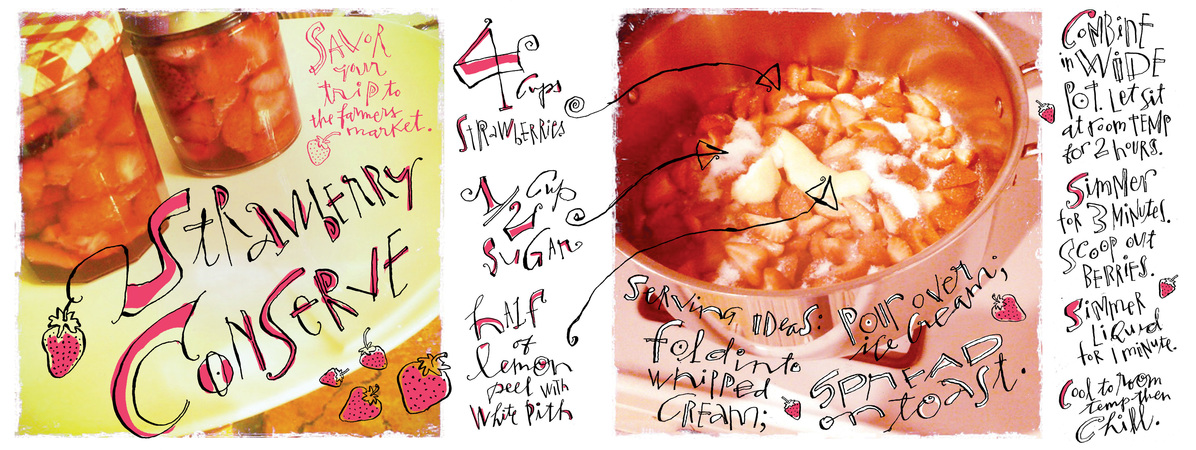 SAVOR
your
trip to
the farmers
market.
STRAWBERRY
CONSERVE
4
Cups
STRAWBERRIES
1/2 Cup
SUGAR
HALF
of
lemon
peel with
White Pith
Serving Ideas: Pour over
ice cream;
fold into
whipped
CREAM;
SPREAD
on toast.
COMBINE
in WIDE
POT. Let sit
at room TEMP
for 2 hours.
Simmer
for 3 Minutes.
Scoop out
BERRIES.
Simmer
Liquid
for 1 minute.
Cool to room
temp then
Chill.